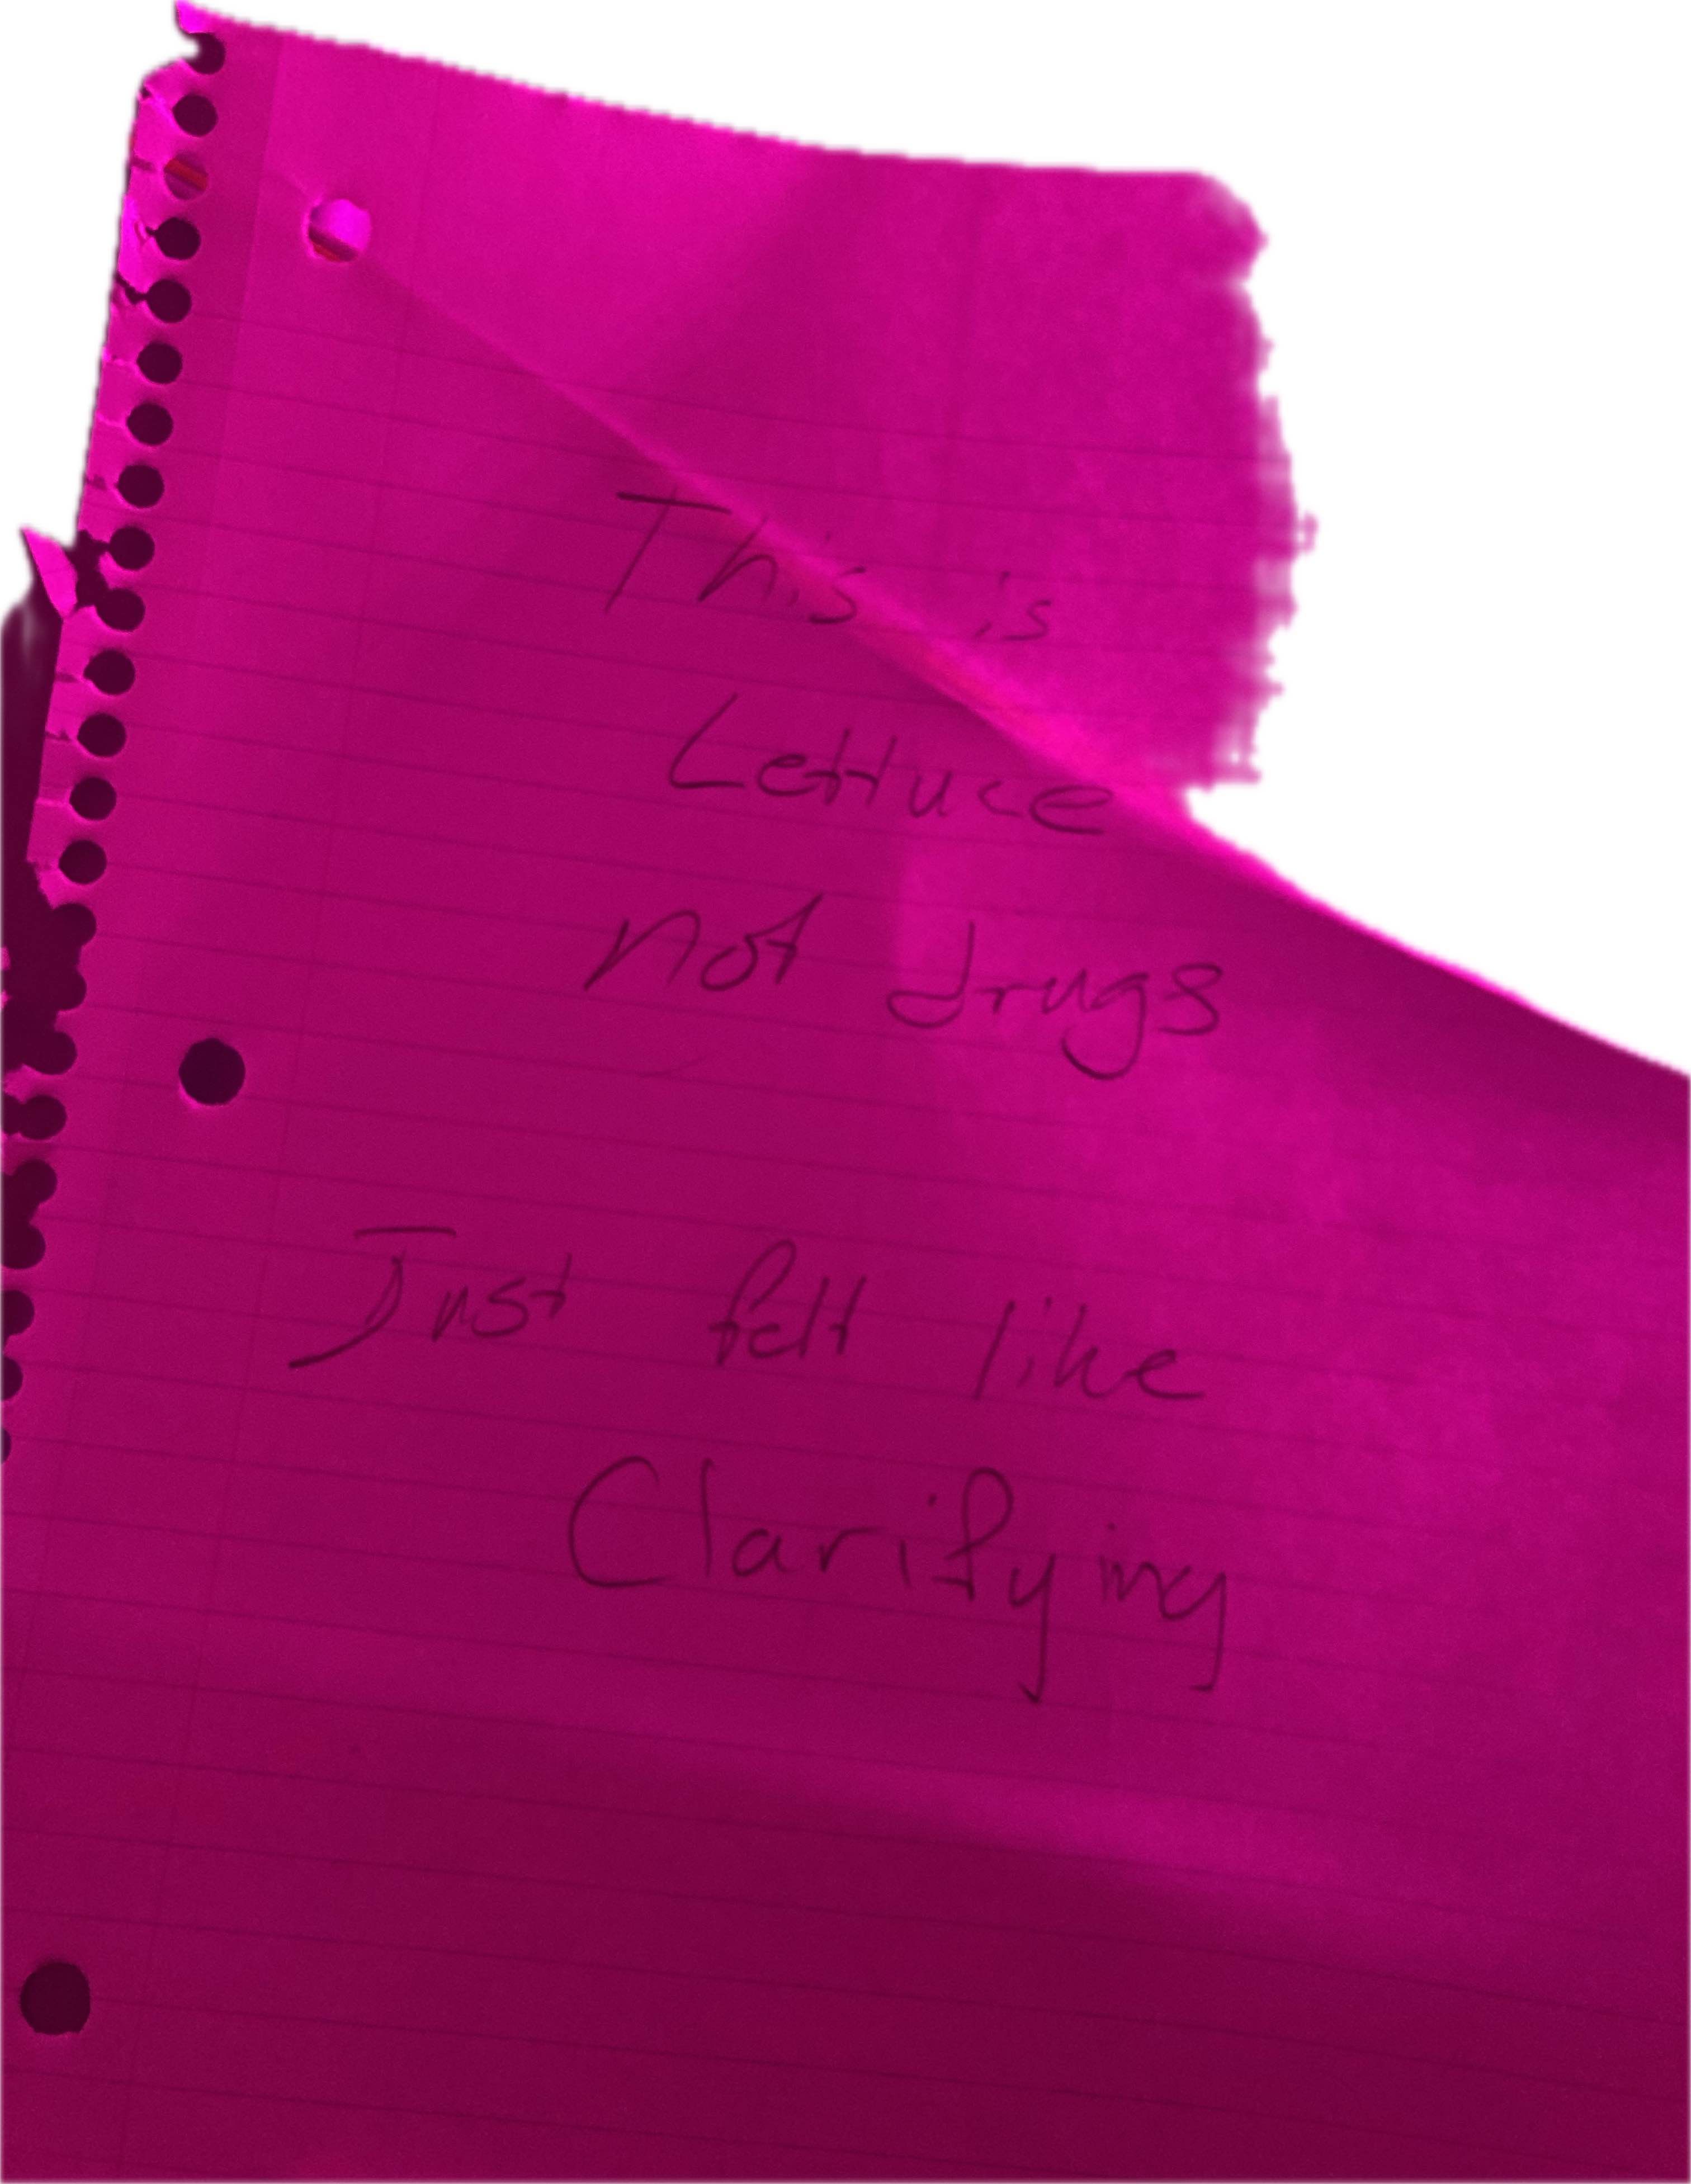 This is
Lettuce
not drugs
Just felt like
Clarifying